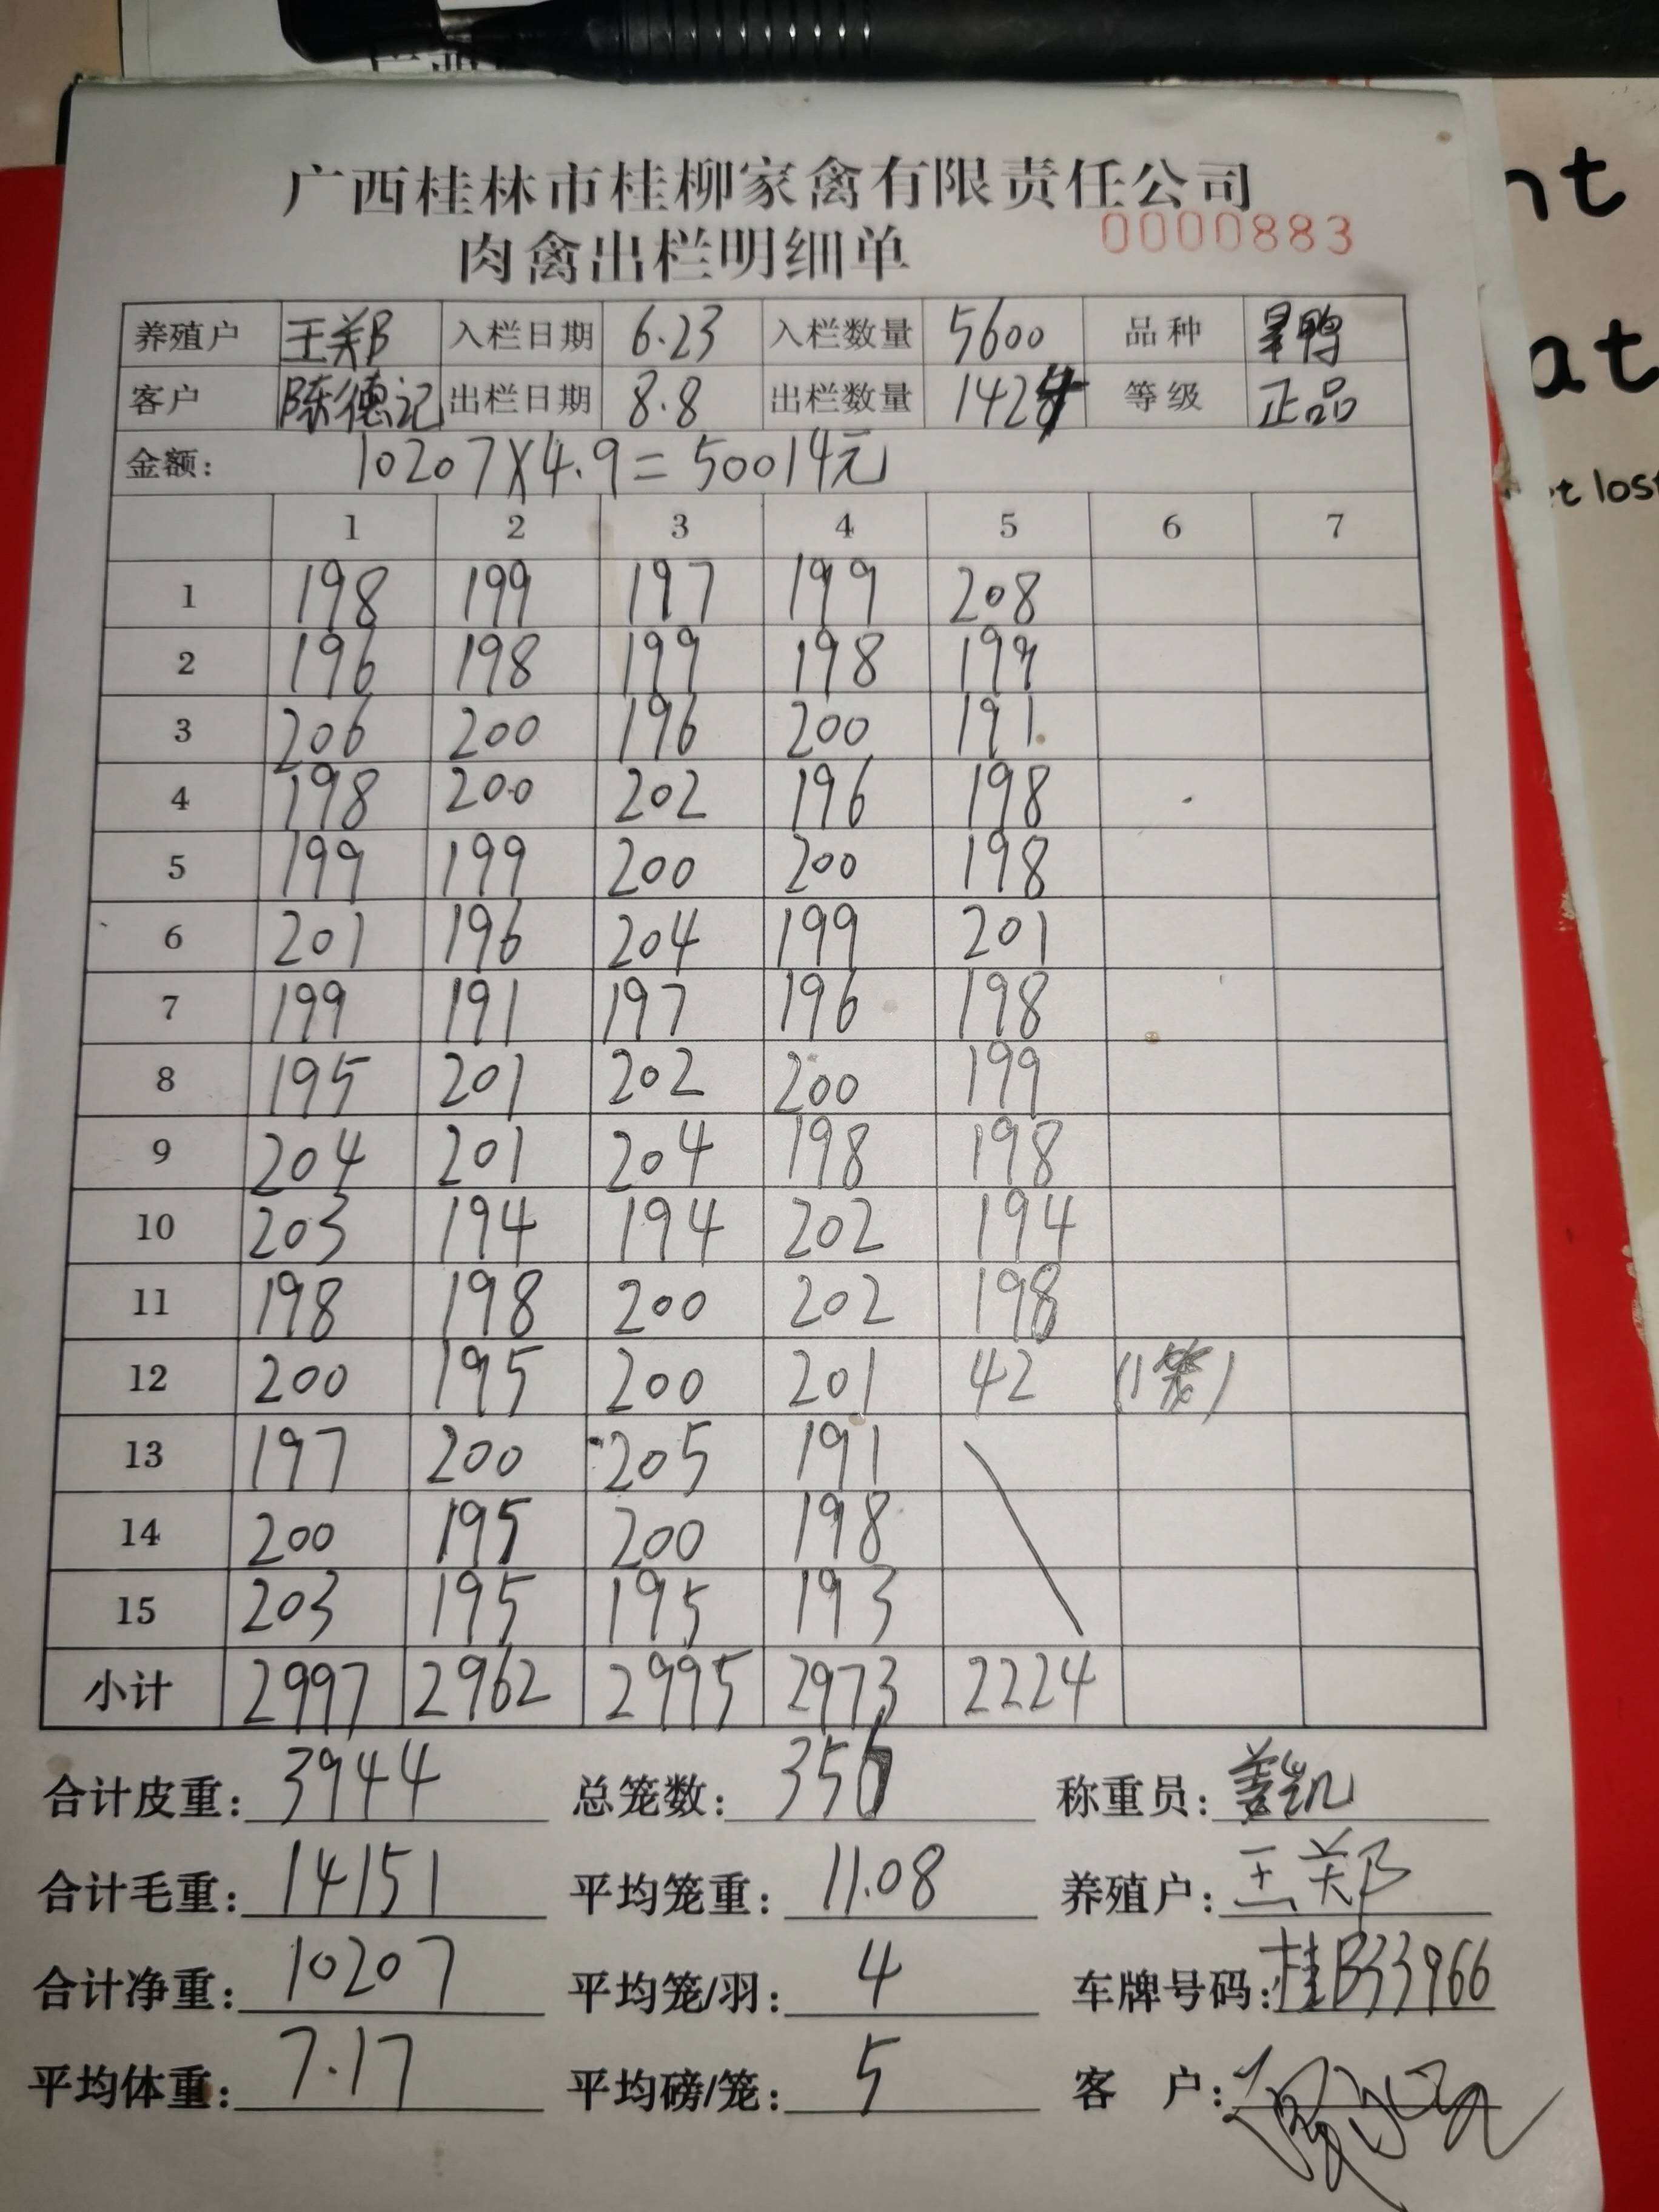 广西桂林市桂柳家禽有限责任公司
肉禽出栏明细单 0000883
养殖户 王郑 入栏日期 6.23 入栏数量 5600 品种 旱鸭
客户 陈德记 出栏日期 8.8 出栏数量 1424 等级 正品
金额: 10207X4.9=50014元
1 2 3 4 5 6 7
1 198 199 197 199 208
2 196 198 199 198 199
3 206 200 196 200 191
4 198 200 202 196 198
5 199 199 200 200 198
6 201 196 204 199 201
7 199 191 197 196 198
8 195 201 202 200 199
9 204 201 204 198 198
10 203 194 194 202 194
11 198 198 200 202 198
12 200 195 200 201 42 (1笼)
13 197 200 205 191
14 200 195 200 198
15 203 195 195 193
小计 2997 2962 2995 2973 2224
合计皮重: 3944 总笼数: 356 称重员: 姜凯
合计毛重: 14151 平均笼重: 11.08 养殖户: 王郑
合计净重: 10207 平均笼/羽: 4 车牌号码: 桂B33966
平均体重: 7.17 平均磅/笼: 5 客 户:
nt
at
t lost